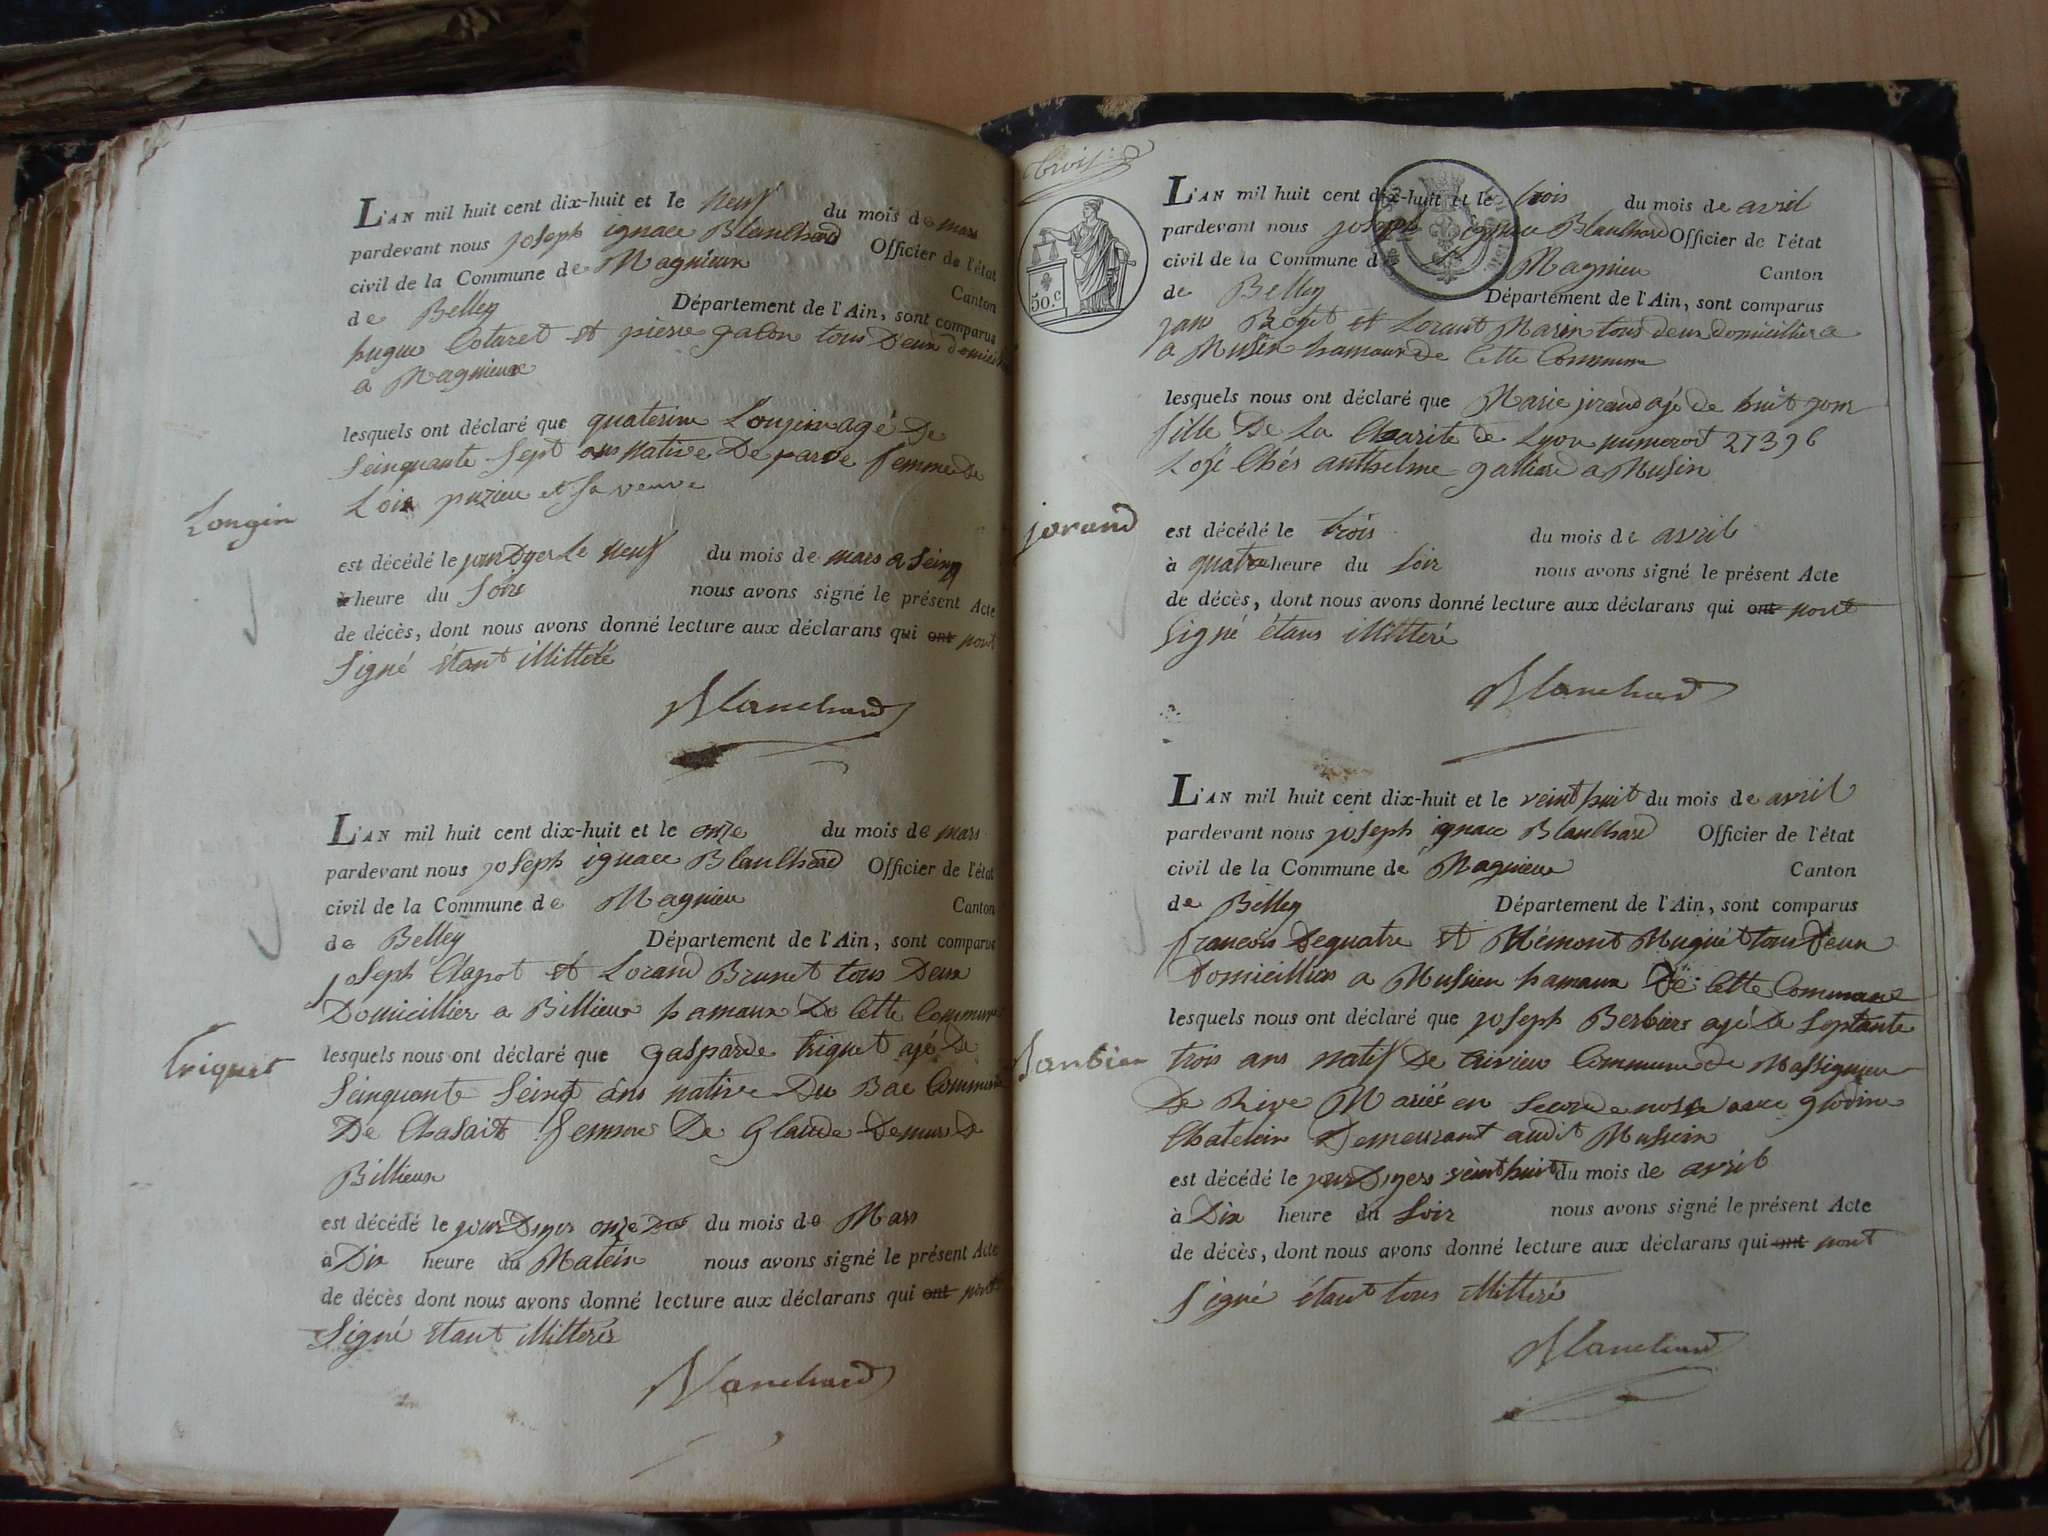 L'AN mil huit cent dix-huit et le neuf du mois de mars
pardevant nous joseph ignace Blanchard Officier de l'état
civil de la Commune de Magnieux Canton
de Belley Département de l'Ain, sont comparus
hugue Cotaret et pierre galon tous Deux
a Magnieux
lesquels ont déclaré que quaterine Longin agé De
Seinquante Sept ans native De parve femme de
Lois puzieu et sa veuve
Longin
est décédé le jourDyer le neuf du mois de mars a Seinq
heure du Soire nous avons signé le présent Acte
de décès, dont nous avons donné lecture aux déclarans qui ont nont
Signé étant illitteré
Blanchard
L'AN mil huit cent dix-huit et le onze du mois de mars
pardevant nous joseph ignace Blanchard Officier de l'état
civil de la Commune de Magnieu Canton
de Belley Département de l'Ain, sont comparus
joseph Chapot et Lorand Brunet tous Deux
Domicillier a Billieux hamaux De Cette Commune
Triquet
lesquels nous ont déclaré que gasparde triquet agé De
Seinquante Seinq ans native Du Bac Commune
De Chasait femme De Glaude Demure De
Billieux
est décédé le jourDyer onze du mois de Mars
à Dix heure du Matein nous avons signé le présent Acte
de décès dont nous avons donné lecture aux déclarans qui ont nont
Signé étant illitterés
Blanchard
trois
50.c
L'AN mil huit cent dix-huit et le trois du mois de avril
pardevant nous joseph ignace Blanchard Officier de l'état
civil de la Commune de Magnieu Canton
de Belley Département de l'Ain, sont comparus
jan Roget et Lorant Marin tous deux domicilier a
a Musin hamaux de Cette Commune
lesquels nous ont déclaré que Marie jorand agé de huit jour
fille De La Charite de Lyon numerot 27396
Logé Chés anthelme galliard a Musin
jorand
est décédé le trois du mois de avril
à quatre heure du Soir nous avons signé le présent Acte
de décès, dont nous avons donné lecture aux déclarans qui ont nont
Signé étans illitteré
Blanchard
L'AN mil huit cent dix-huit et le veint huit du mois de avril
pardevant nous joseph ignace Blanchard Officier de l'état
civil de la Commune de Magnieux Canton
de Belley Département de l'Ain, sont comparus
francois Dequatre et Clémont Muguet tous Deux
Domicillier a Mussien hamaux De Cette Commune
lesquels nous ont déclaré que joseph Berbier agé De Septante
Barbier
trois ans natif De Commune de Massignieu
De Rive Marié en Seconde nosse avec
Chatelein Demeurant audit Mussein
est décédé le jourDyer veint huit du mois de avril
à Dix heure du Soir nous avons signé le présent Acte
de décès, dont nous avons donné lecture aux déclarans qui ont nont
Signé étant tous illitteré
Blanchard